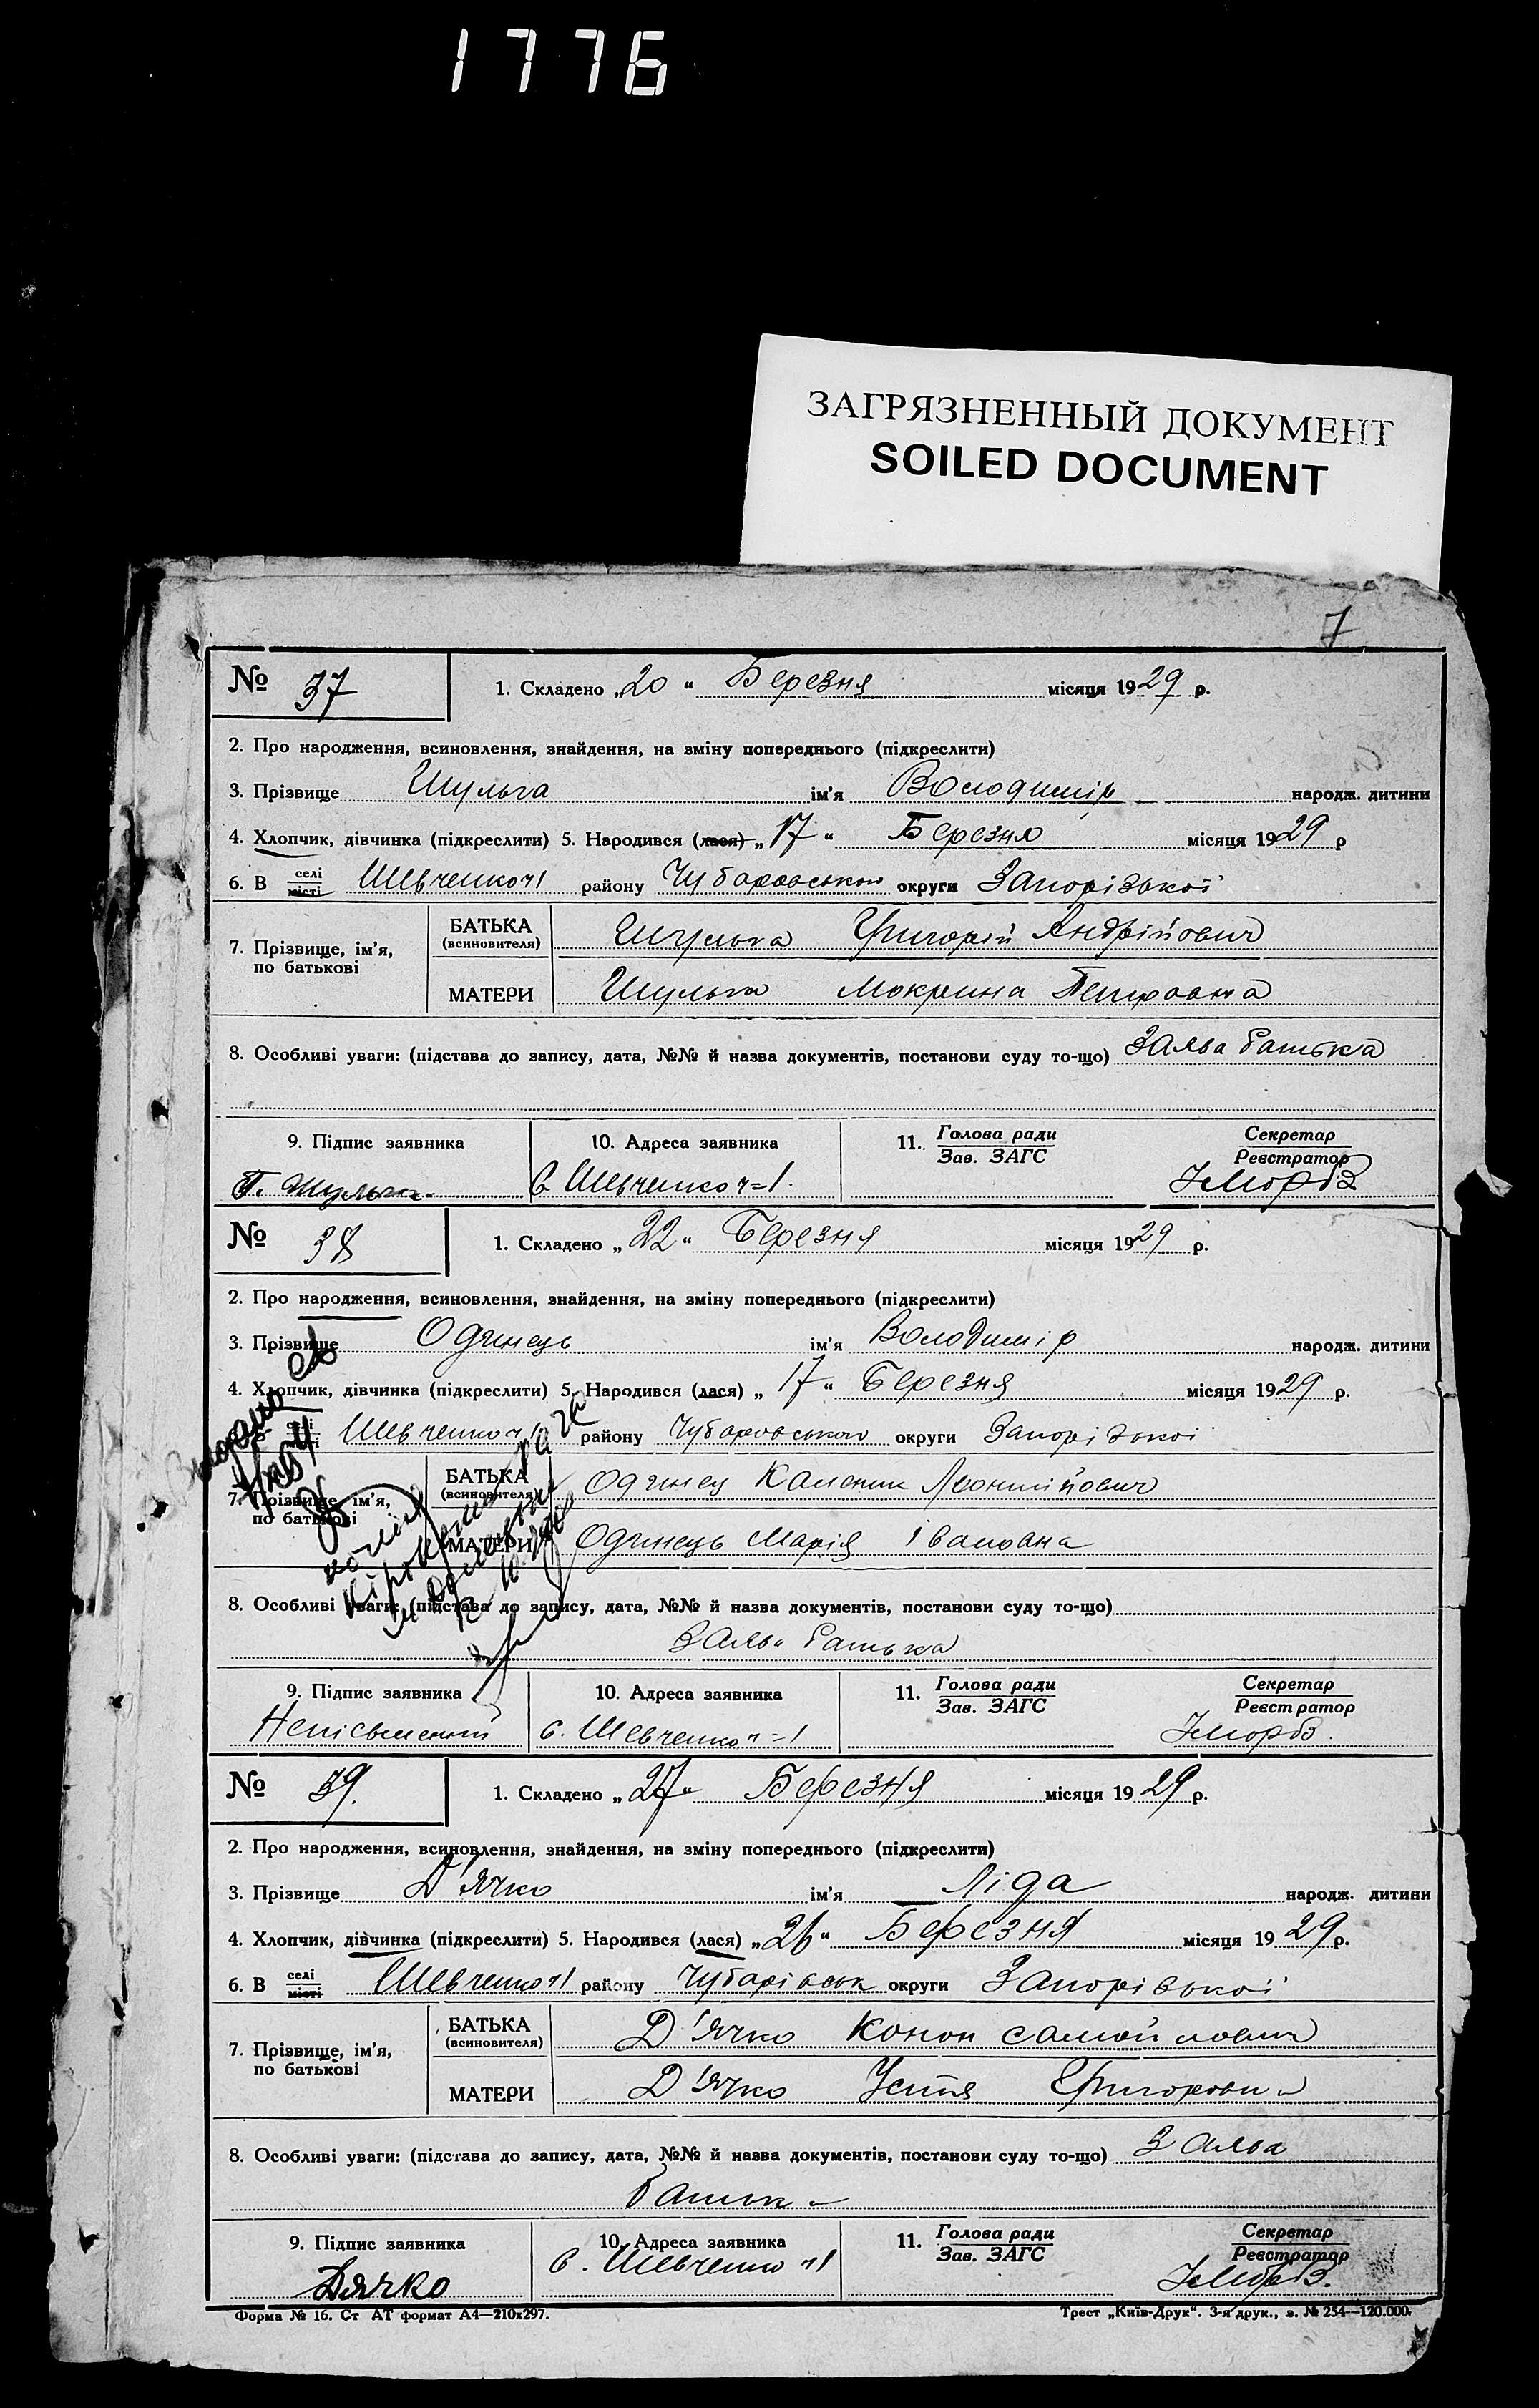 1776
ЗАГРЯЗНЕННЫЙ ДОКУМЕНТ
SOILED DOCUMENT
7
№ 37 1. Складено „20“ Березня місяця 1929 р.
2. Про народження, всиновлення, знайдення, на зміну попереднього (підкреслити)
3. Прізвище Шульга ім'я Володимір народж. дитини
4. Хлопчик, дівчинка (підкреслити) 5. Народився (лася) „17“ Березня місяця 1929 р
6. В селі місті Шевченко ч1 району Чубаровського округи Запорізької
7. Прізвище, ім'я, по батькові БАТЬКА (всиновителя) Шульга Григорій Андрійович
МАТЕРИ Шульга Мокрина Петровна
8. Особливі уваги: (підстава до запису, дата, №№ й назва документів, постанови суду то-що) Заява батька
9. Підпис заявника 10. Адреса заявника 11. Голова ради Зав. ЗАГС Секретар Реєстратор
Г. Шульга С Шевченко ч=1.
№ 38 1. Складено „22“ Березня місяця 1929 р.
2. Про народження, всиновлення, знайдення, на зміну попереднього (підкреслити)
3. Прізвище Одинець ім'я Володимір народж. дитини
4. Хлопчик, дівчинка (підкреслити) 5. Народився (лася) „17“ Березня місяця 1929 р.
селі місті Шевченко ч1 району Чубаровського округи Запорізької
7. Прізвище, ім'я, по батькові БАТЬКА (всиновителя) Одинец Каленик
МАТЕРИ Одинець Марія Івановна
8. Особливі уваги: (підстава до запису, дата, №№ й назва документів, постанови суду то-що)
Заява батька
9. Підпис заявника 10. Адреса заявника 11. Голова ради Зав. ЗАГС Секретар Реєстратор
Неписьменний С. Шевченко ч=1
№ 39. 1. Складено „27“ Березня місяця 1929 р.
2. Про народження, всиновлення, знайдення, на зміну попереднього (підкреслити)
3. Прізвище Д'ячко ім'я Ліда народж. дитини
4. Хлопчик, дівчинка (підкреслити) 5. Народився (лася) „26“ Березня місяця 1929 р.
6. В селі місті Шевченко ч1 району Чубарівськ округи Запорізької
7. Прізвище, ім'я, по батькові БАТЬКА (всиновителя) Д'ячко Конон Самойлович
МАТЕРИ Д'ячко Устя
8. Особливі уваги: (підстава до запису, дата, №№ й назва документів, постанови суду то-що) Заява
батька
9. Підпис заявника 10. Адреса заявника 11. Голова ради Зав. ЗАГС Секретар Реєстратор
Дячко С. Шевченко ч1
Форма № 16. Ст АТ формат А4—210х297. Трест „Київ-Друк“. 3-я друк., з. № 254—120.000.